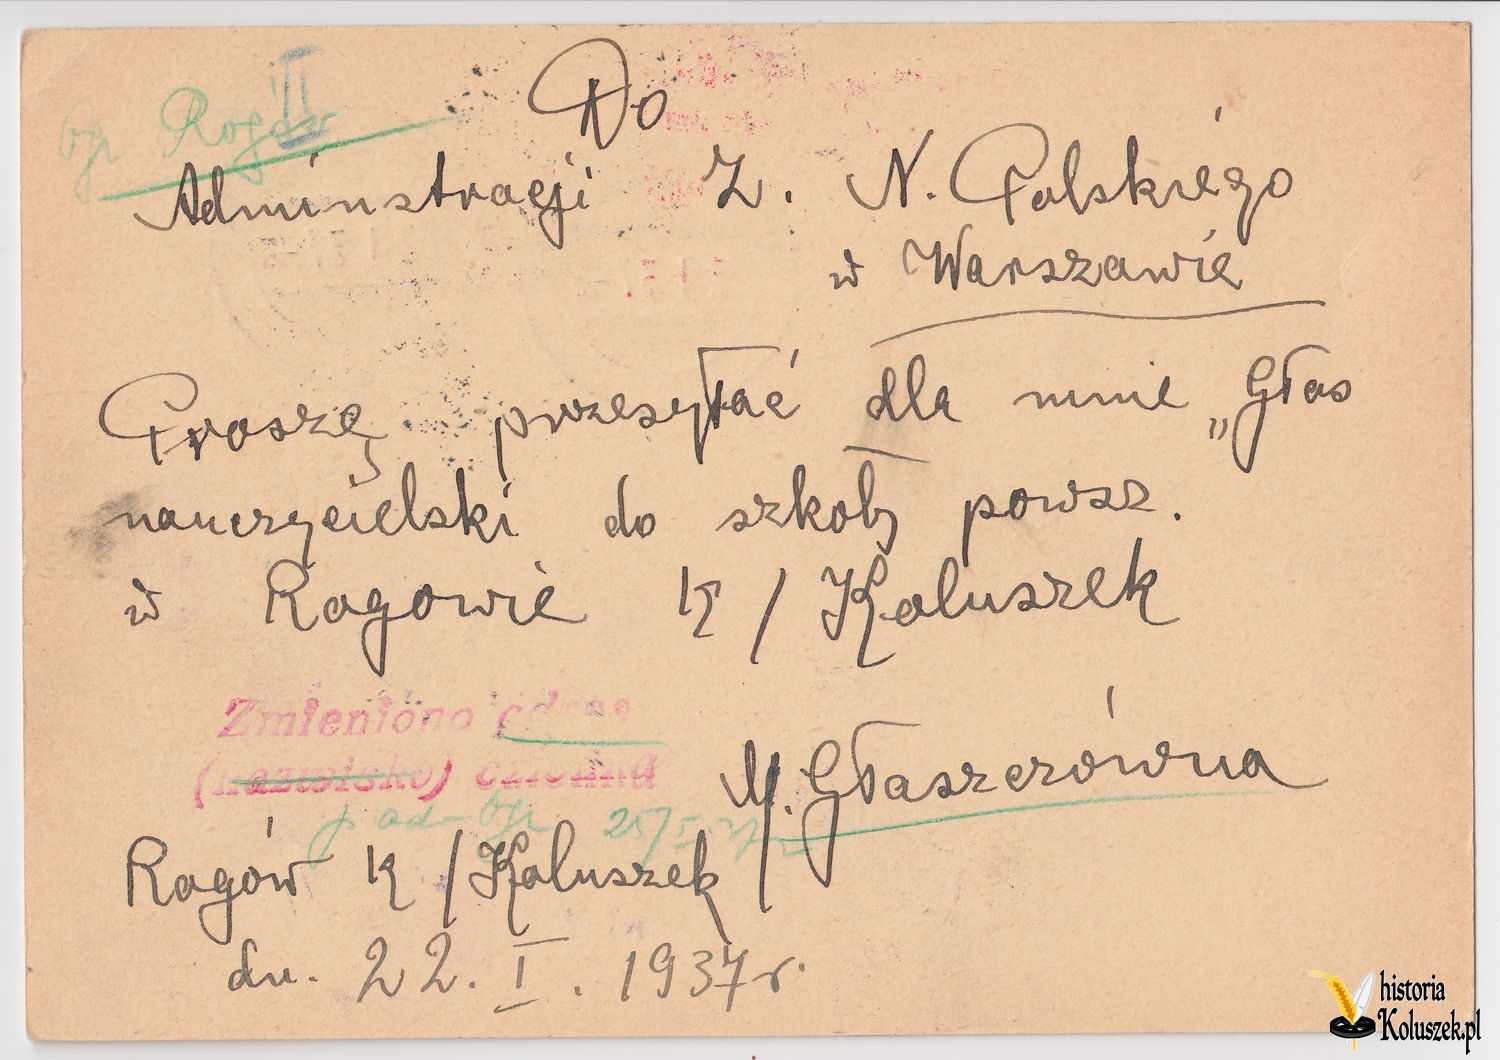 Do
ogn Rogów
II
Adminstracji Z. N. Polskiégo
w Warszawie
Proszę przesyłać dla mnie „Głos
nauczycielski do szkoły powsz.
w Rogowie k/Koluszek
Zmieniono adres
(nazwisko) członka
M. Głaszczówna
25/I.37
Rogów k/Koluszek
dn. 22. I. 1937 r.
historia
Koluszek.pl